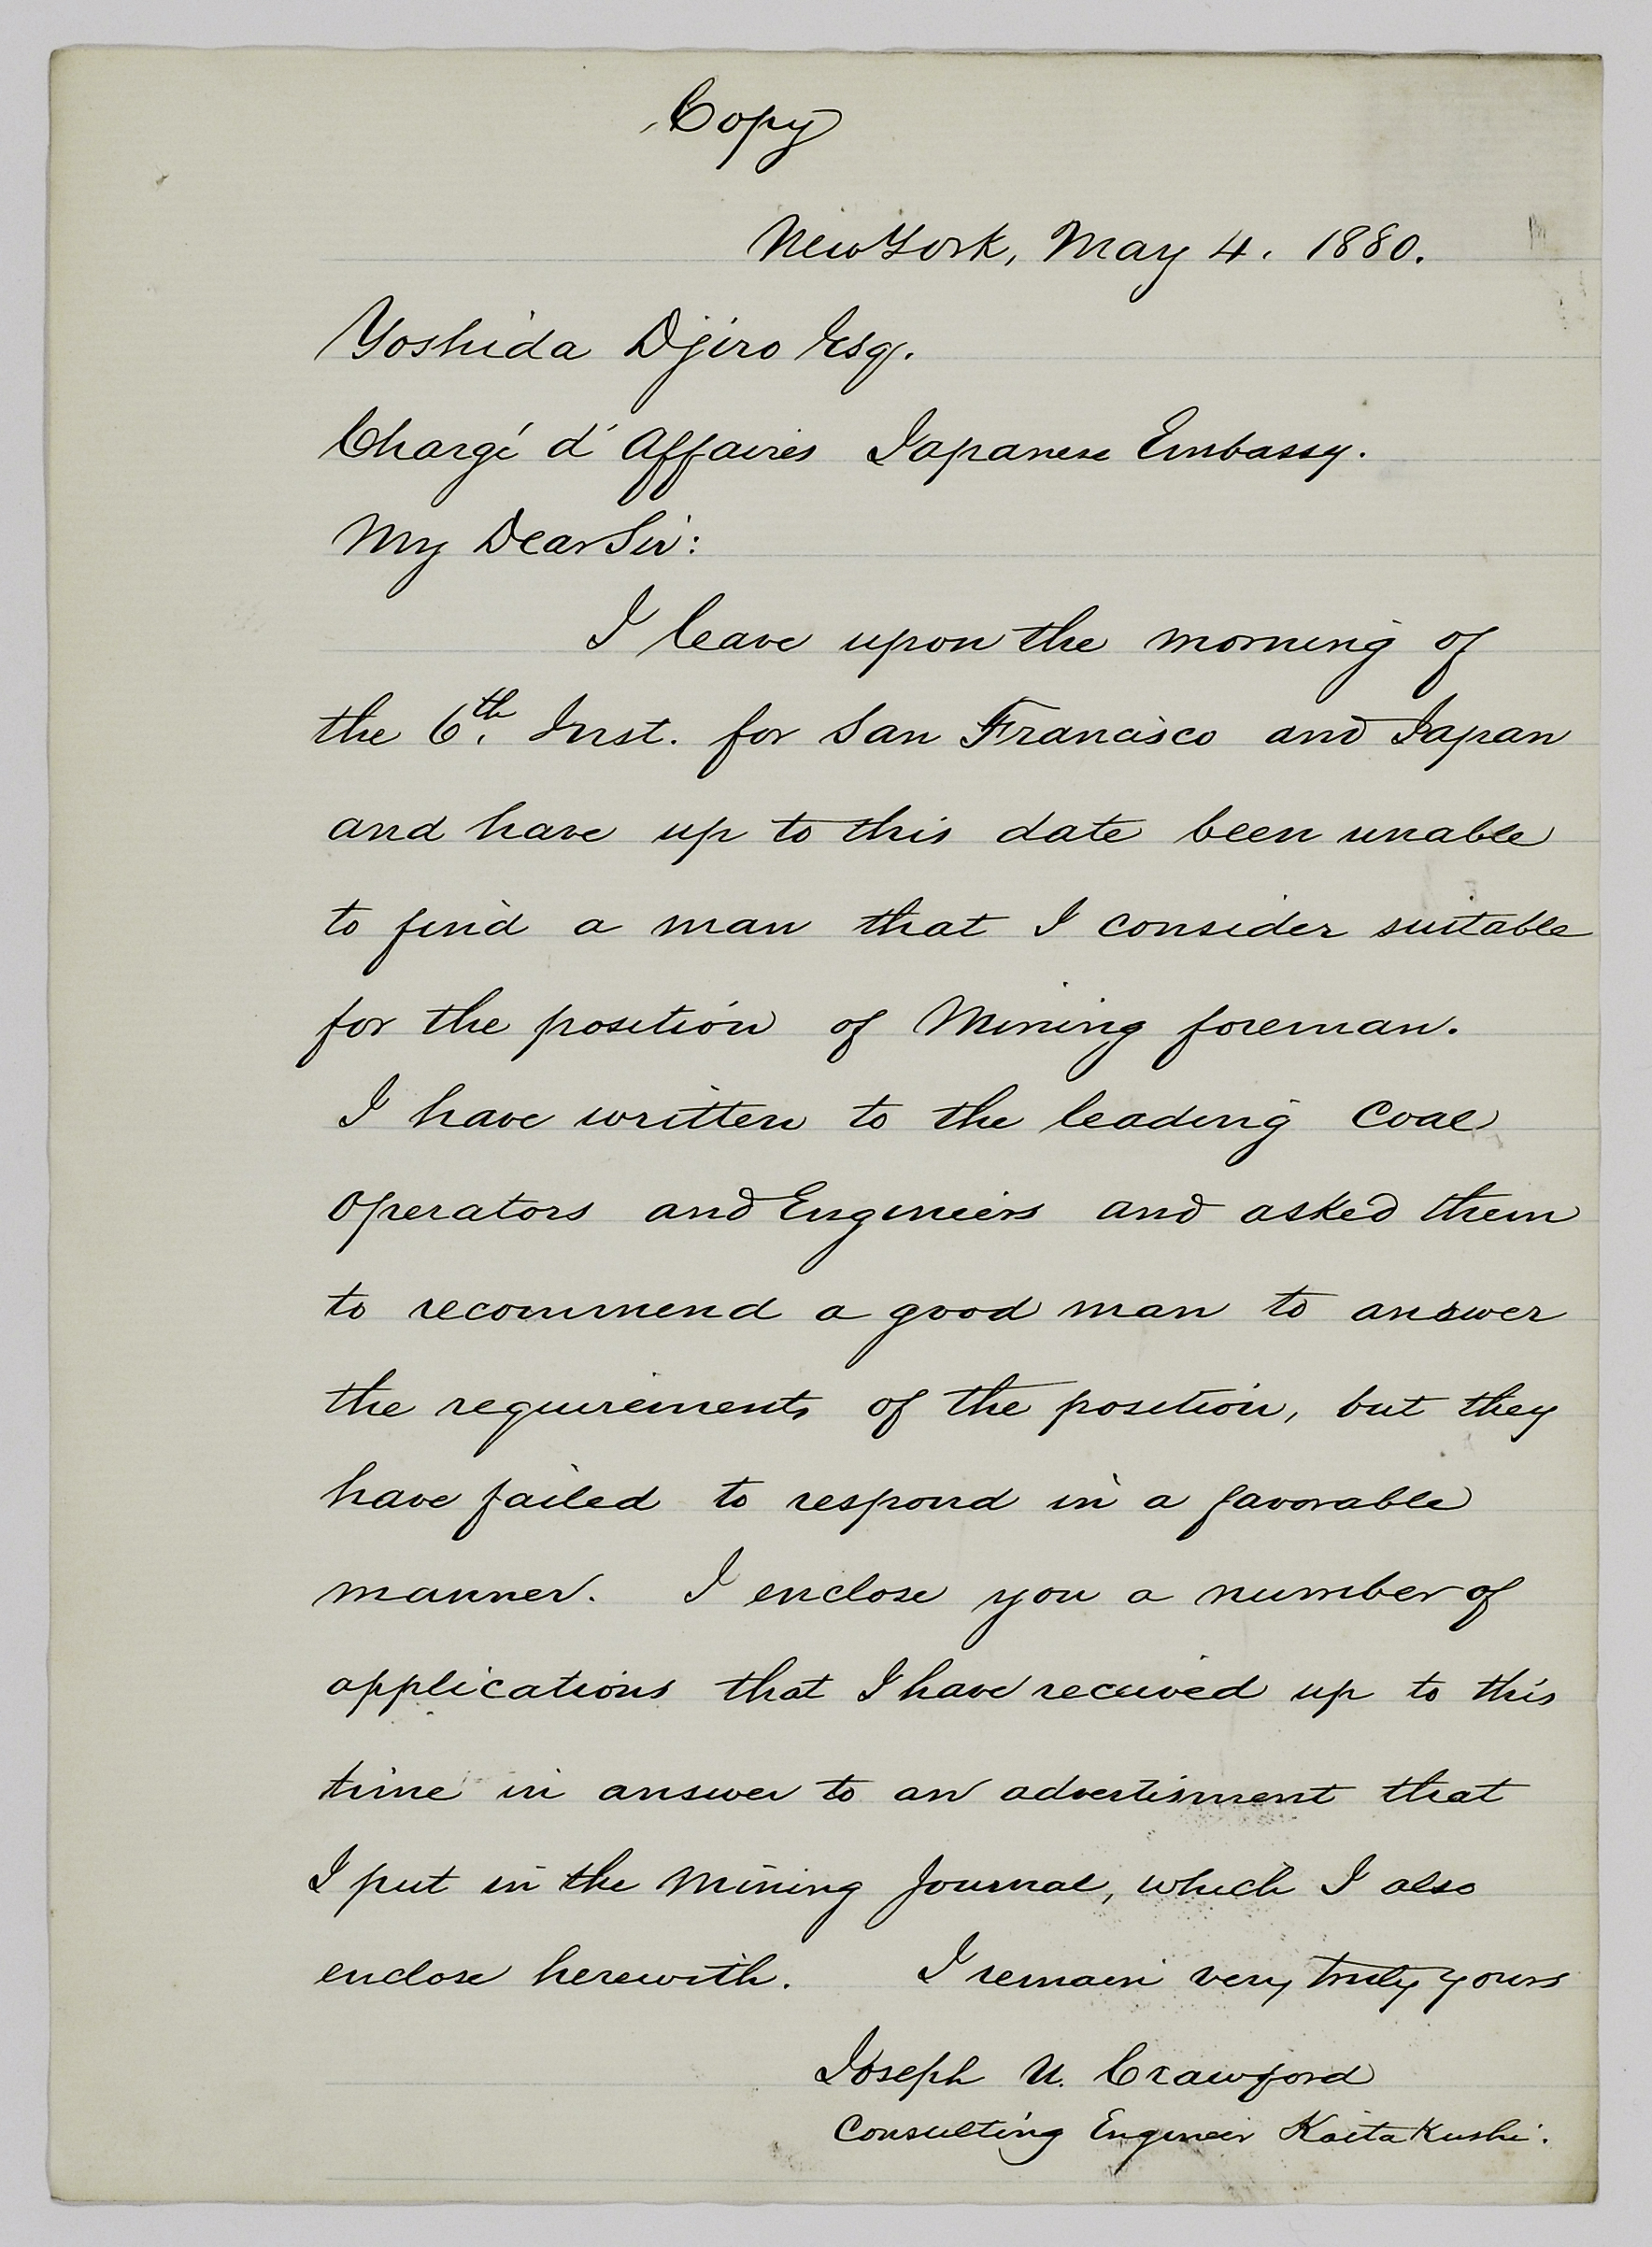 Copy
New York, May 4. 1880.
Yoshida Djiro Esq.
Chargé d' Affaires Japanese Embassy.
My Dear Sir:
I leave upon the morning of
the 6th. Inst. for San Francisco and Japan
and have up to this date been unable
to find a man that I consider suitable
for the position of Mining foreman.
I have written to the leading Coal
Operators and Engineers and asked them
to recommend a good man to answer
the requirements of the position, but they
have failed to respond in a favorable
manner. I enclose you a number of
applications that I have received up to this
time in answer to an advertisment that
I put in the Mining Journal, which I also
enclose herewith. I remain very truly yours
Joseph U. Crawford
Consulting Engineer Kaitakushi.